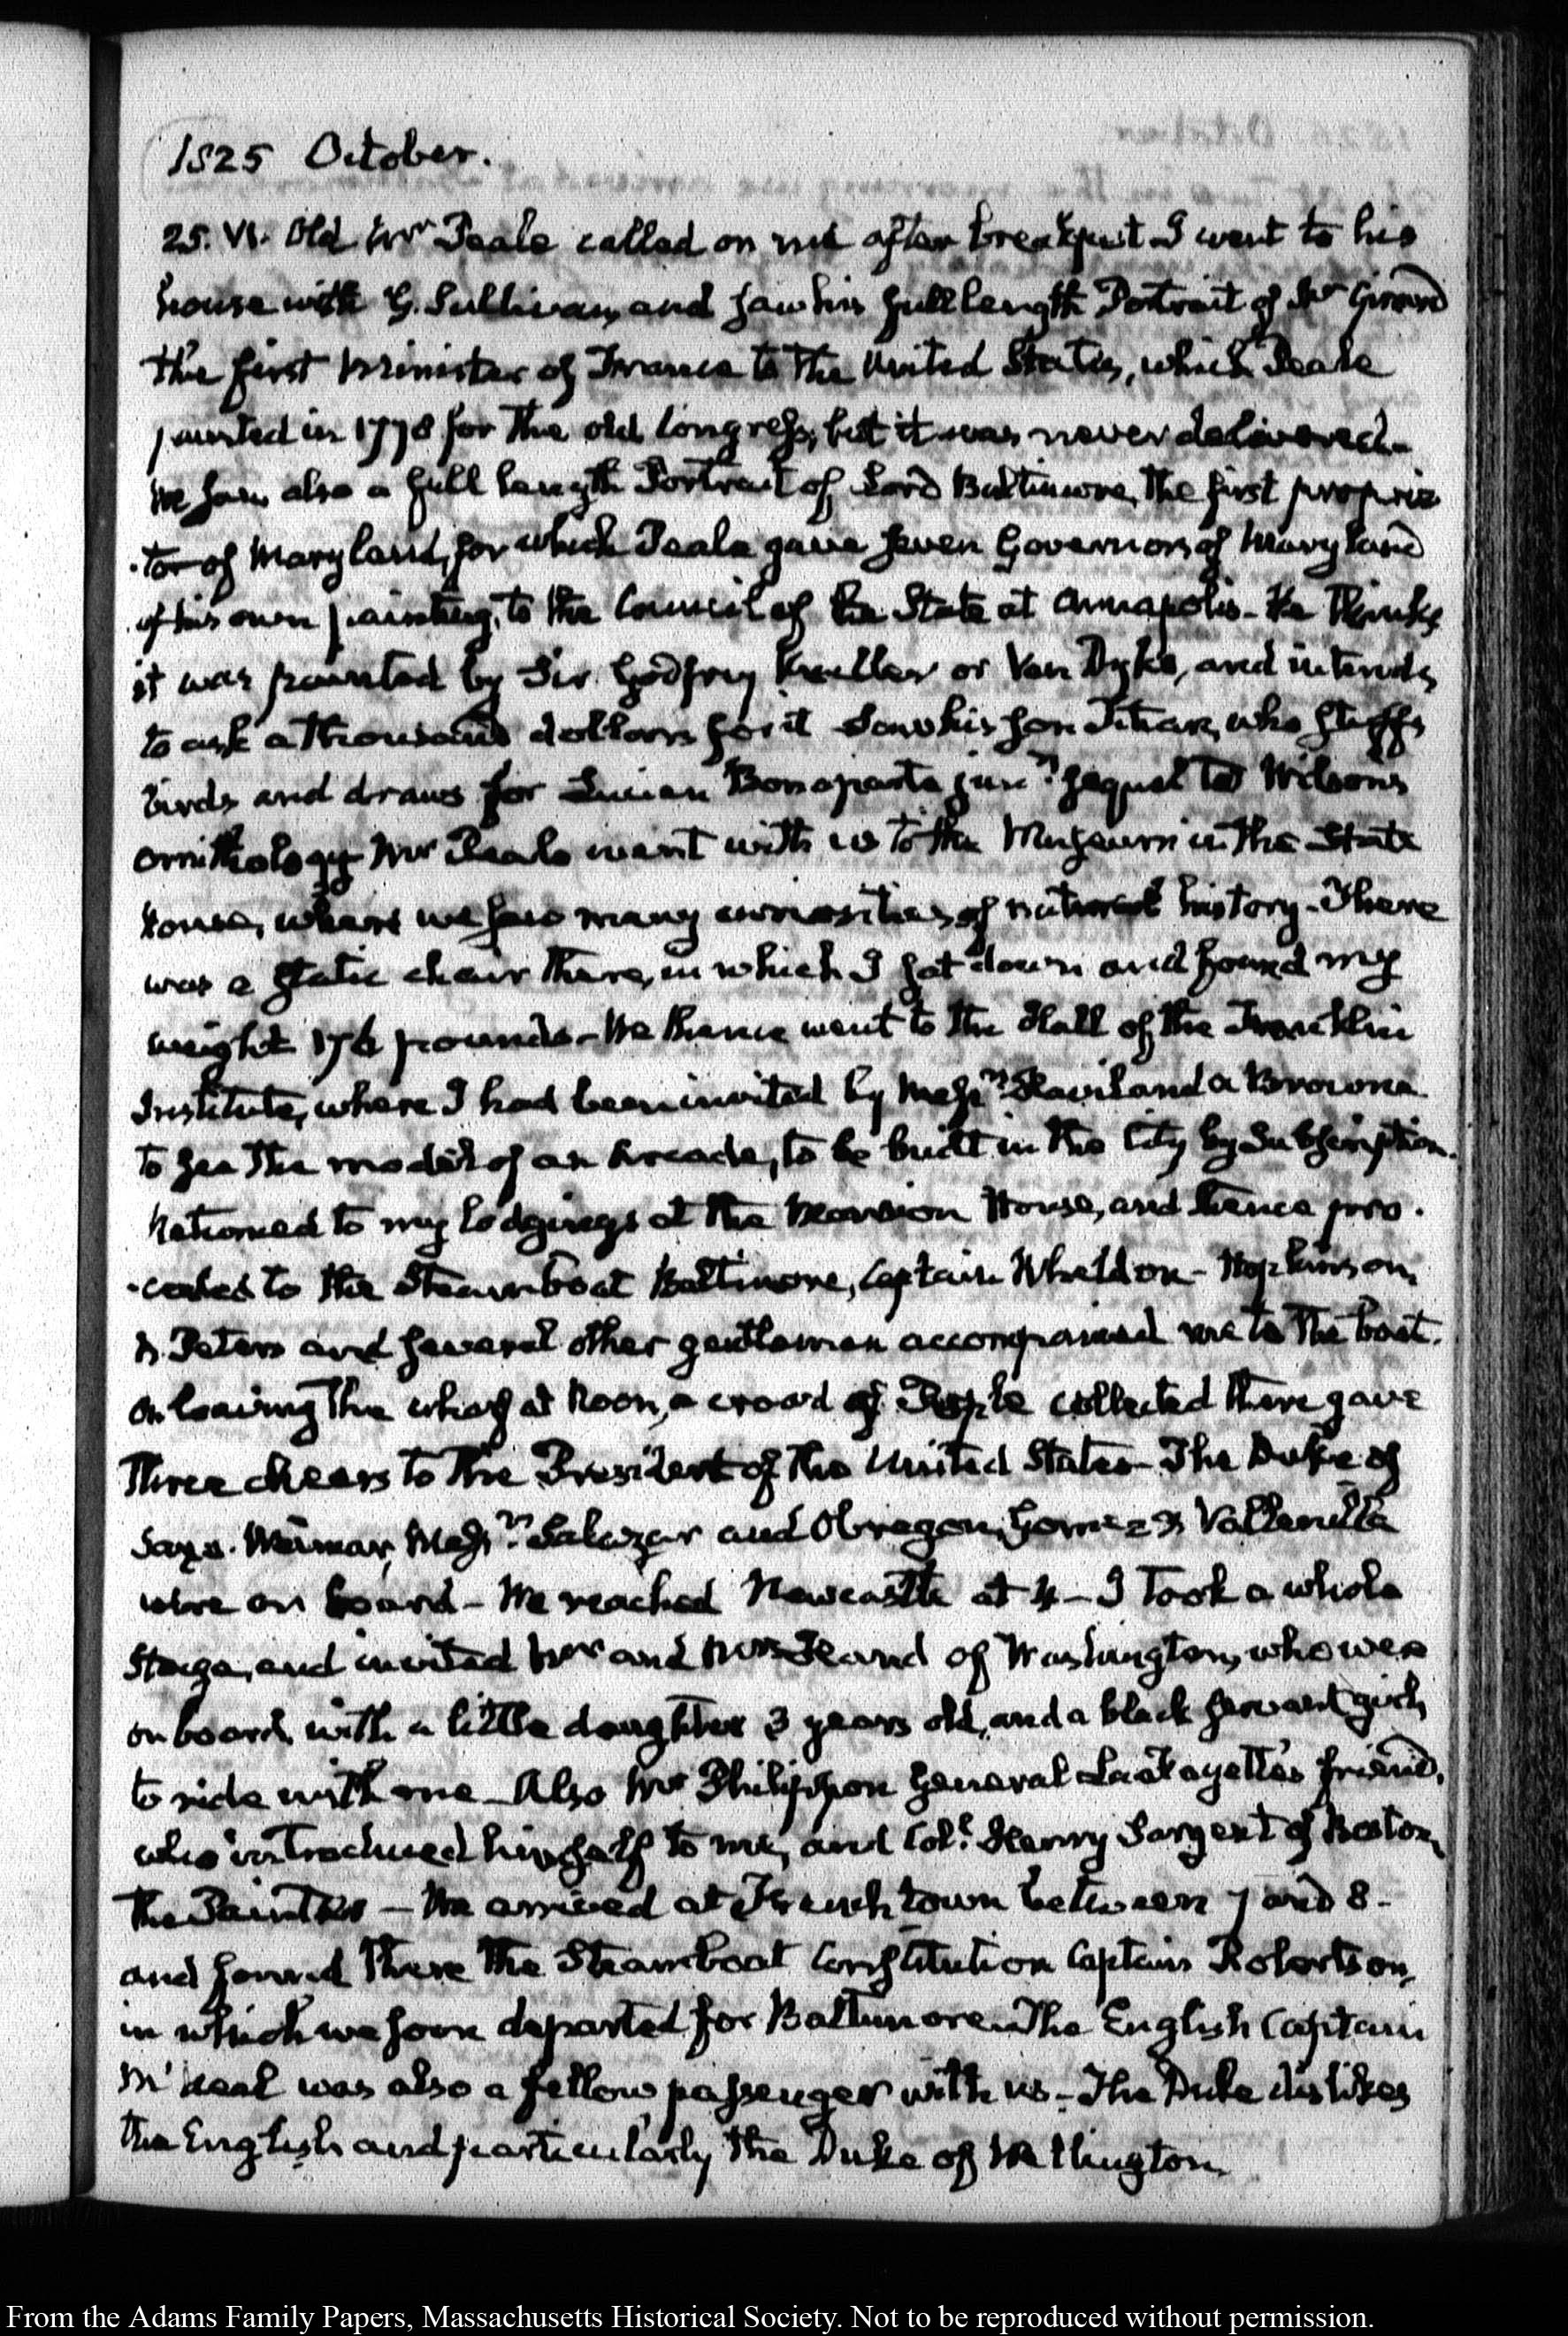 1825 October.
25. VI. Old Mr Peale called on me after breakfast I went to his
house with G. Sullivan, and saw his full length Portrait of Mr Girard
the first Minister of France to the United States, which Peale
painted in 1778 for the old Congress, but it was never delivered-
We saw also a full length Portrait of Lord Baltimore, the first proprie
-tor of Maryland, for which Peale gave seven Governors of Maryland
of his own painting, to the Council of the State at Annapolis- He thinks
it was painted by Sir Godfrey Kneller or Van Dyke, and intends
to ask a thousand dollars for it Saw his son Titian, who stuffs
birds and draws for Lucian Bonaparte junr. sequel to Wilson's
ornithology- Mr Peale went with us to the Museum in the State
house, where we saw many curiosities of natural history- There
was a static chair there, in which I sat down and found my
weight 176 pounds- We thence went to the Hall of the Franklin
Institute, where I had been invited by Messrs. Haviland & Browne
to see the model of an Arcade, to be built in the City by Subscription.
Returned to my lodgings at the Mansion House, and thence pro-
-ceeded to the Steamboat Baltimore, Captain Wheldon- Hopkinson,
& Peters and several other gentlemen accompanied me to the boat.
On leaving the wharf at Noon, a crowd of People collected there gave
three cheers to the President of the United States- The Duke of
Saxe-Weimar, Messrs. Salazar and Obregon, Gomez & Vallenilla
were on board- We reached Newcastle at 4- I took a whole
Stage, and invited Mr and Mrs of Washington, who were
on board, with a little daughter 3 years old, and a black servant girl,
to ride with me- Also Mr Philippon General La Fayette's friend,
who introduced himself to me, and Coll. Henry Sargent of Boston,
the Painter- We arrived at Frenchtown between 7 and 8-
and found there the Steamboat Constitution Captain Robertson,
in which we soon departed for Baltimore. The English Captain
was also a fellow passenger with us- The Duke dislikes
the English and particularly the Duke of Wellington.
From the Adams Family Papers, Massachusetts Historical Society. Not to be reproduced without permission.